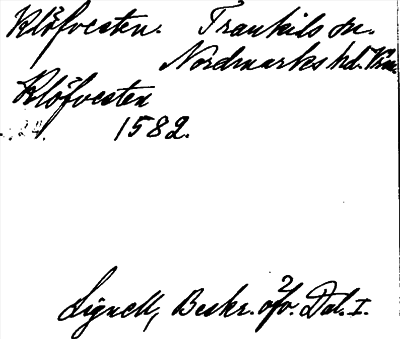 Klöfvesten. Trankils sn.
Nordmarks hd. Vrm.
Klöfvesten
1582.
Lignell, Beskr. öfv. Dal. I.